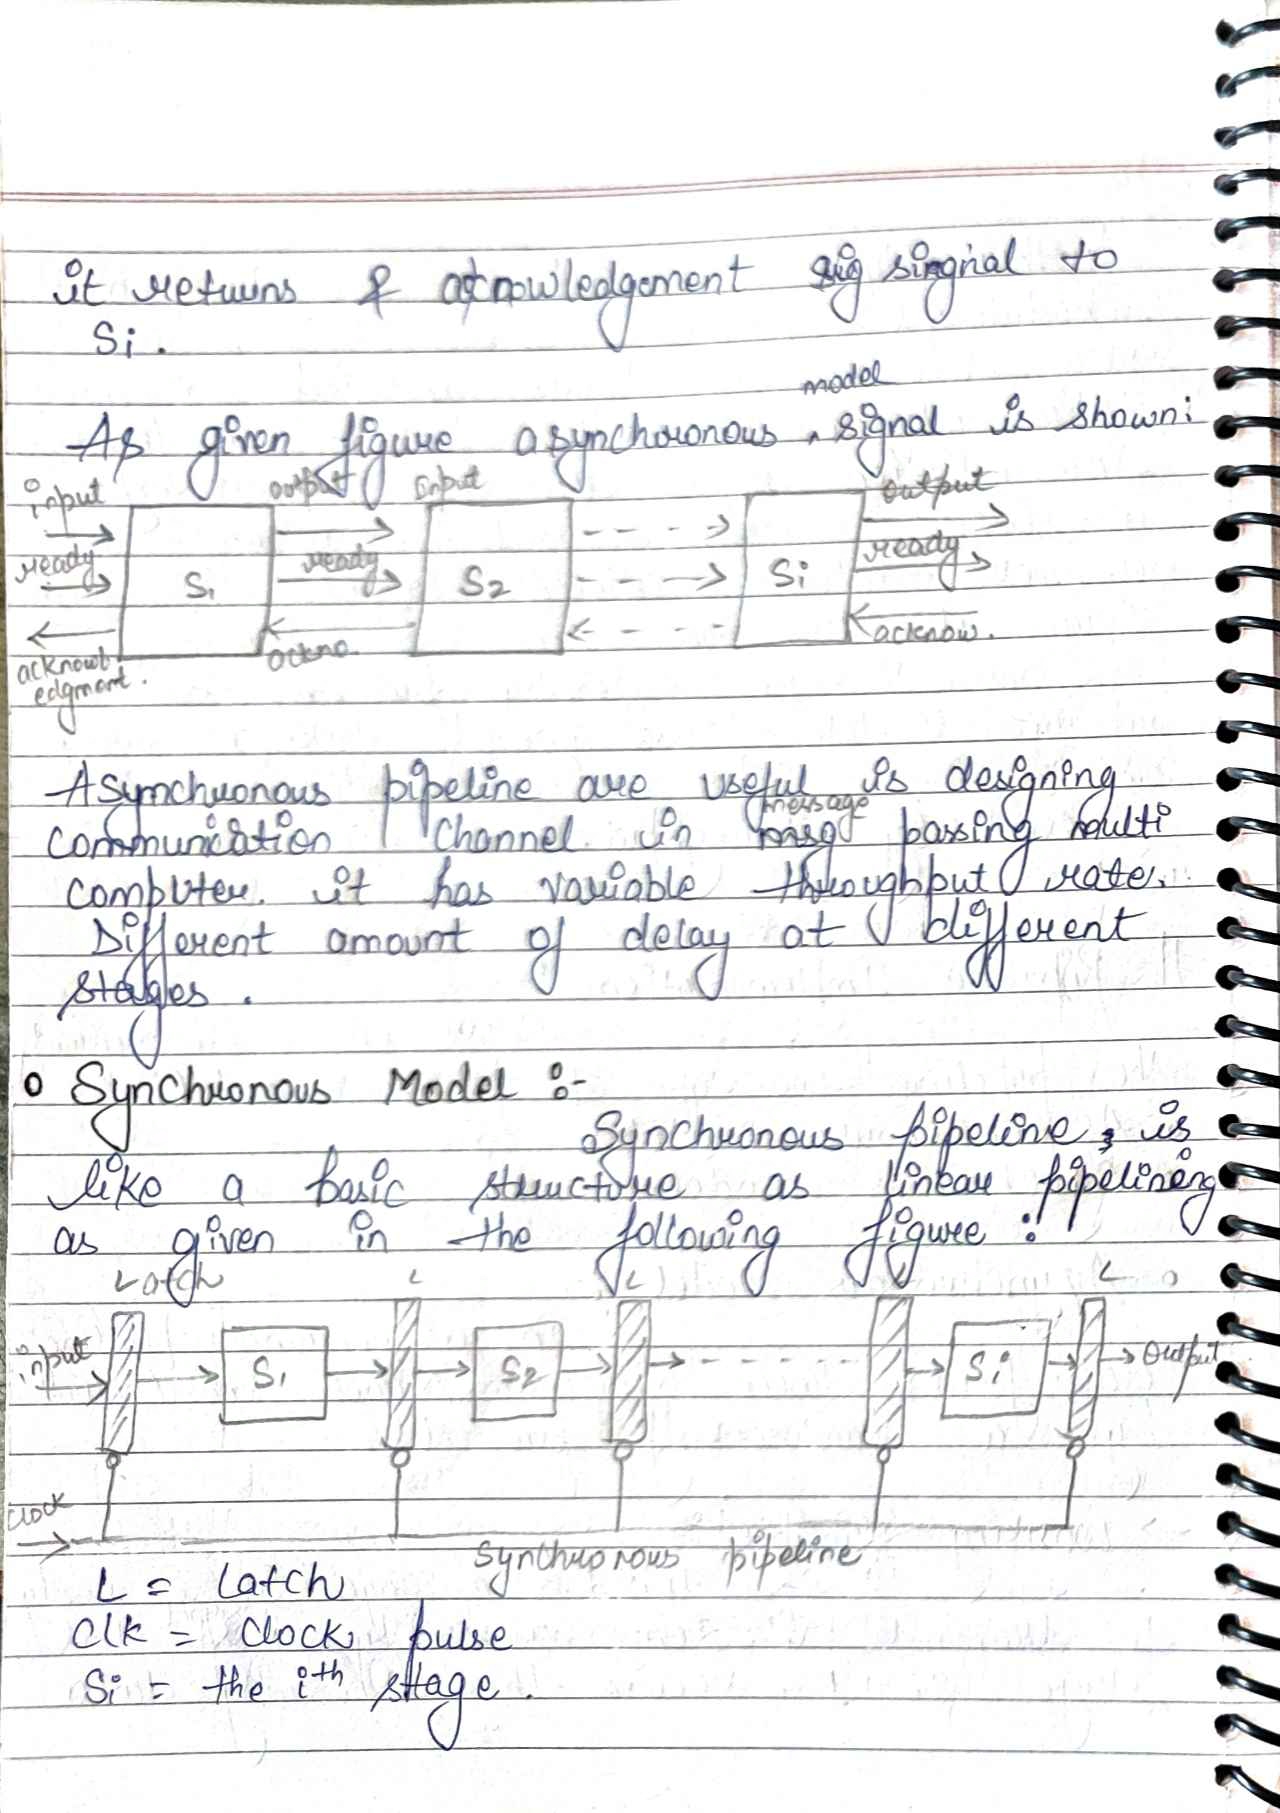 it returns & acknowledgement sig singnal to
Si.
model
As given figure asynchronous ‸ signal is shown:
input output input output
ready ready ready
S1 S2 Si
acknowl edgment. ackno. acknow.
Asynchronous pipeline are useful is designing
message
communication channel in msg passing multi
computer. it has variable throughput rate.
Different amount of delay at different
stages.
o Synchronous Model :-
Synchronous pipeline, is
like a basic structure as linear pipelining
as given in the following figure :
Latch L L L L
input S1 S2 Si Output
clock
Synchronous pipeline
L = Latch
Clk = Clock pulse
Si = the ith stage.